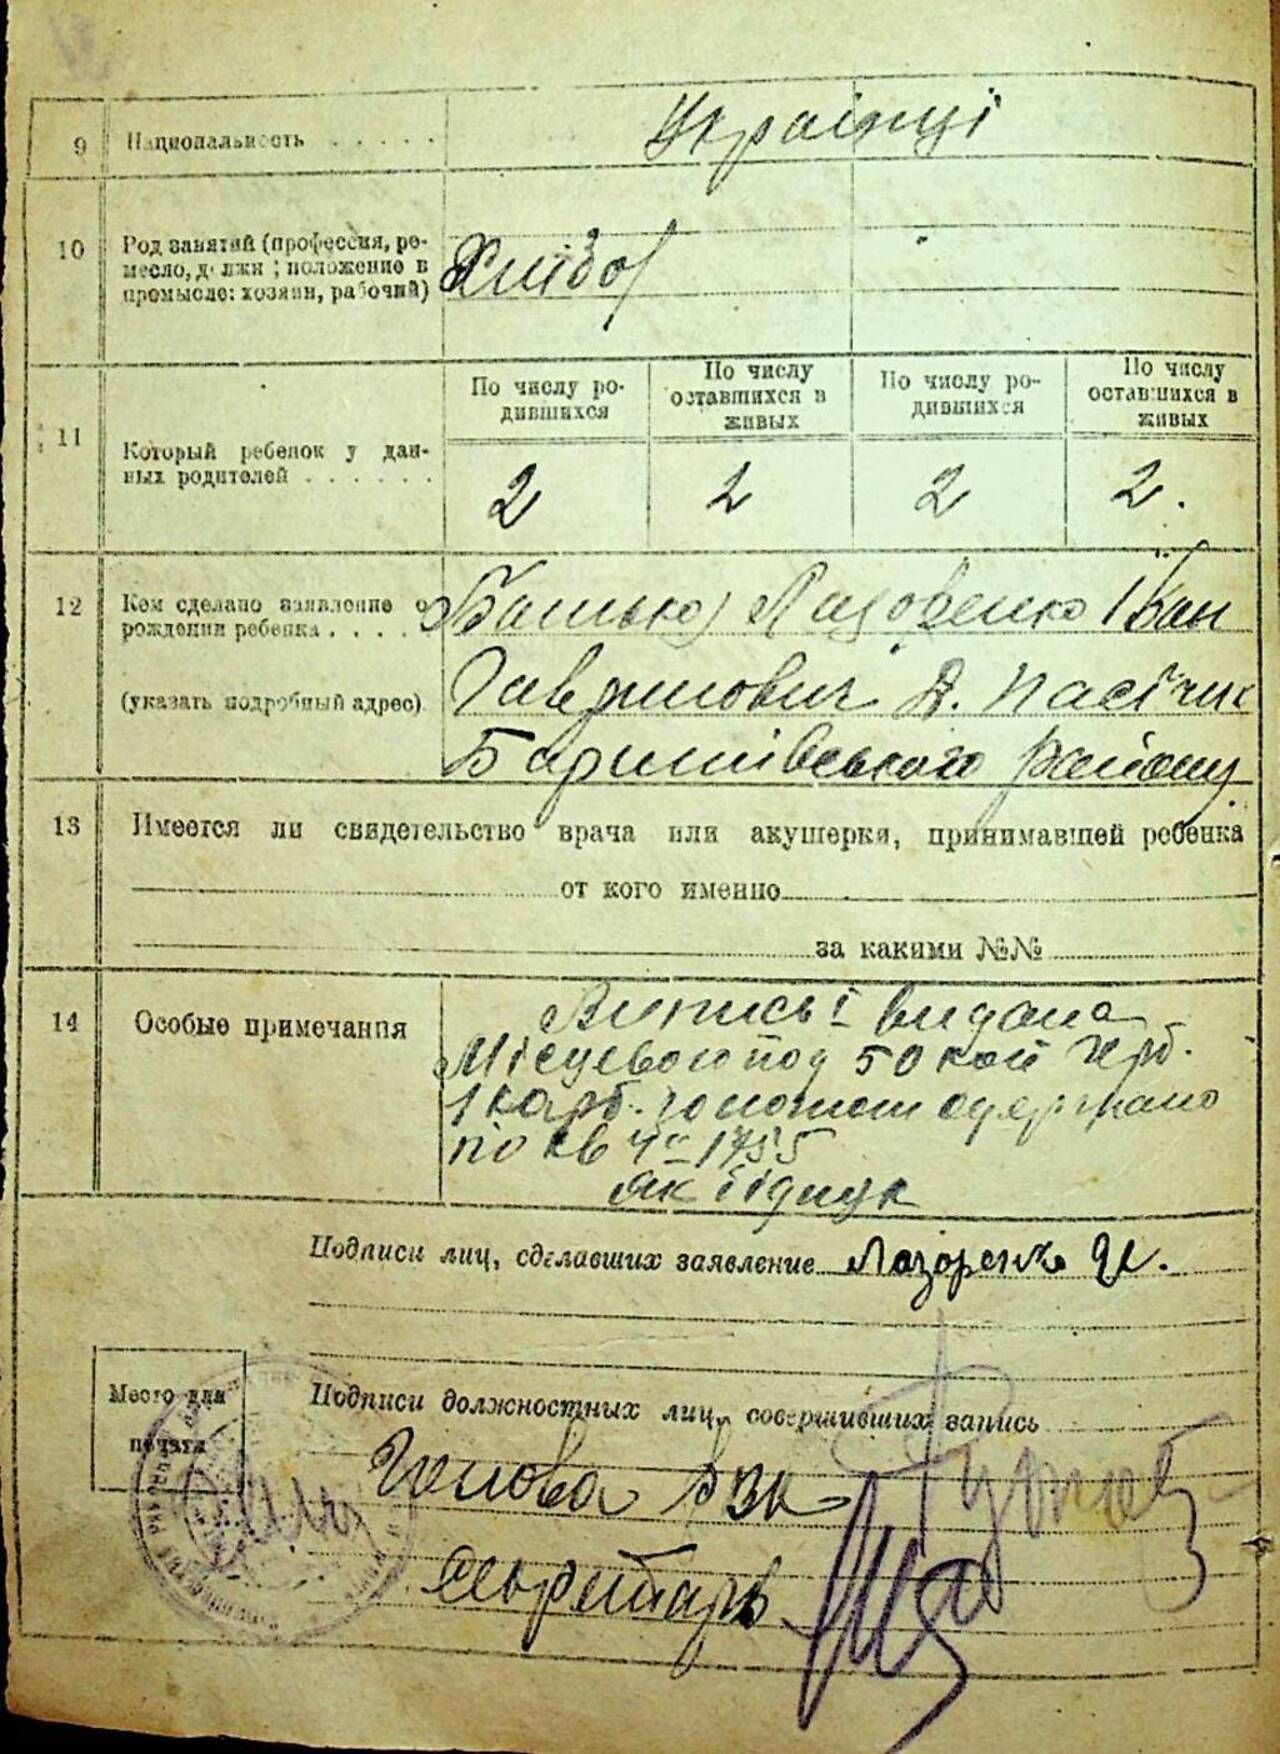 9 Национальность
Українці
10 Род занятий (профессия, ре-
месло, должн; положение в
промысле: хозяин, рабочий)
Хлібор
11 Который ребенок у дан-
ных родителей
По числу ро-
дившихся
По числу
оставшихся в
живых
По числу ро-
дившихся
По числу
оставшихся в
живых
2 2 2 2.
12 Кем сделано заявление о
рождении ребенка
(указать подробный адрес)
Батько Лазоренко Іван
Гаврилович
Баришівського району
13 Имеется ли свидетельство врача или акушерки, принимавшей ребенка
от кого именно
за какими №№
14 Особые примечания
Випись видана
Місцевого под 50 коп
1 карб. золотом одержано
по кв
Подписи лиц, сделавших заявление Лазоренко
Место для
печати
Подписи должностных лиц, совершивших запись
Голова
Секретарь